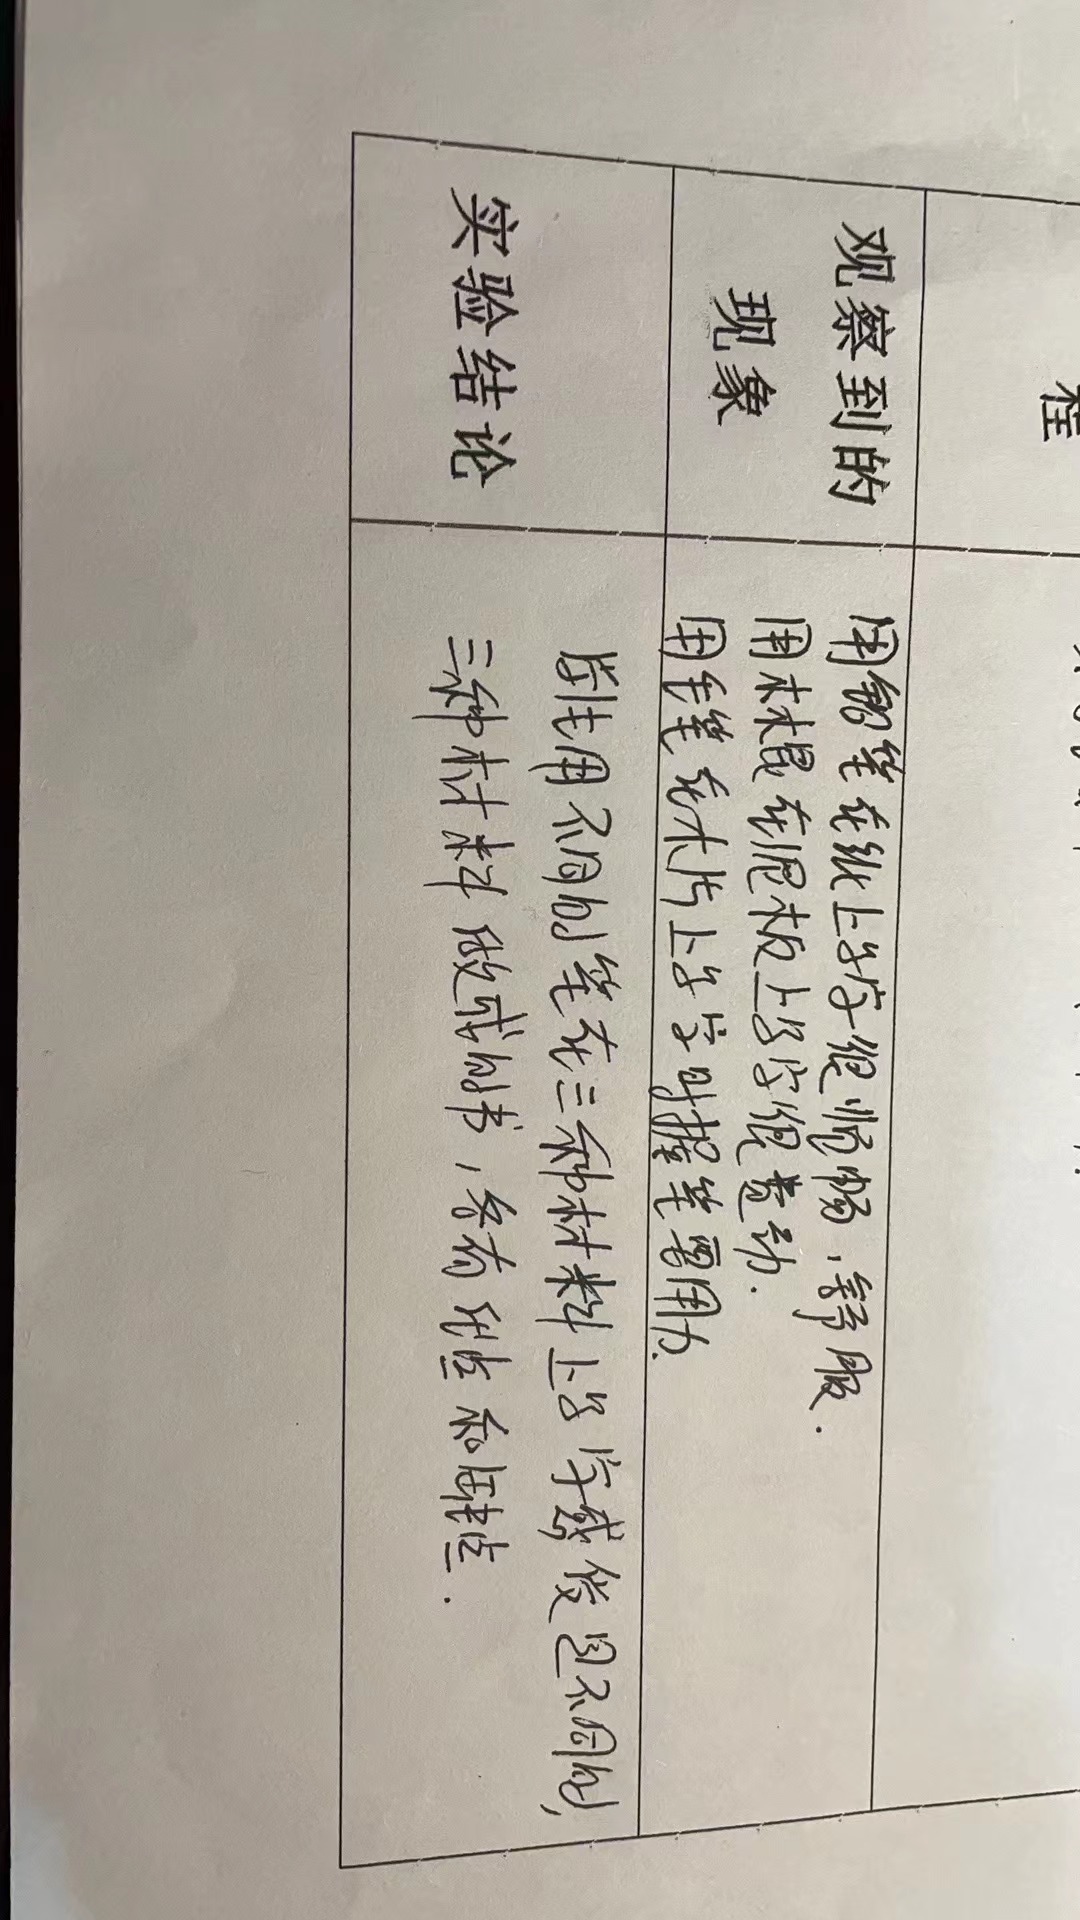 程
观察到的
现象
用铅笔在纸上写字很顺畅，舒服.
用木棍在泥板上写字很费劲.
用毛笔在木片上写字时握笔要用力.
实验结论
使用不同的笔在三种材料上写字感受是不同的，
三种材料做成的书，各有利点和缺点.